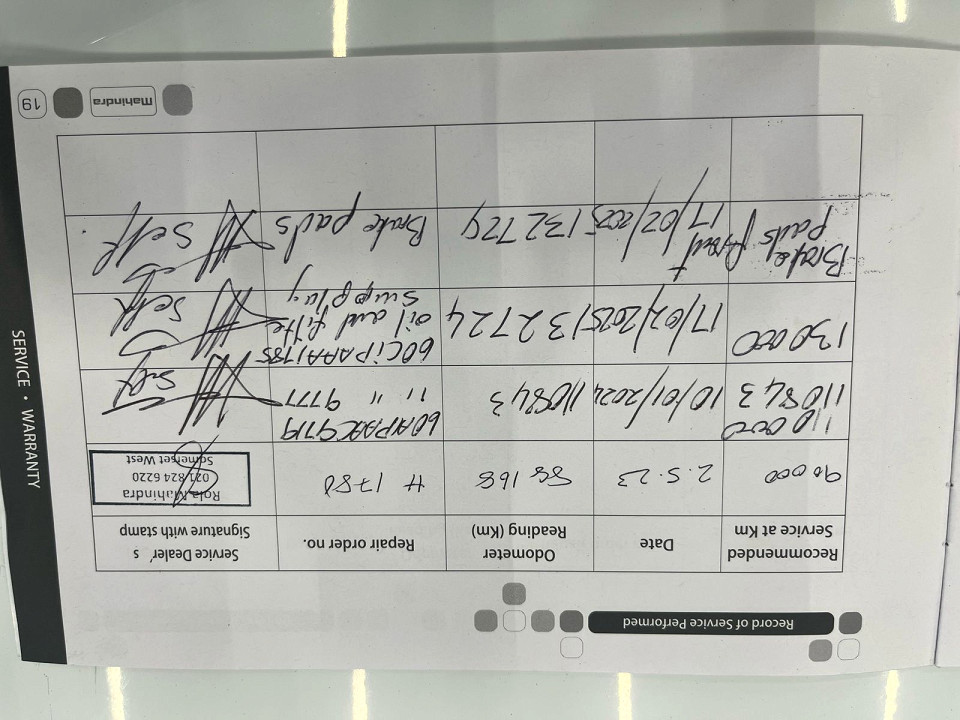 Record of Service Performed
Recommended Service at Km
Date
Odometer Reading (Km)
Repair order no.
Service Dealer's Signature with stamp
90 000
2.5.23
88 168
# 1780
Rola Mahindra
021 824 6220
Somerset West
110 000
110843
10/01/2024
110843
60APAAC9719
" " 9777
Self
130 000
17/02/2025
132724
60CiPARA1785
oil and filte
Supplay
Self
Brake Pads front
17/02/2025
132724
Brake pads
Self
Mahindra
19
SERVICE • WARRANTY